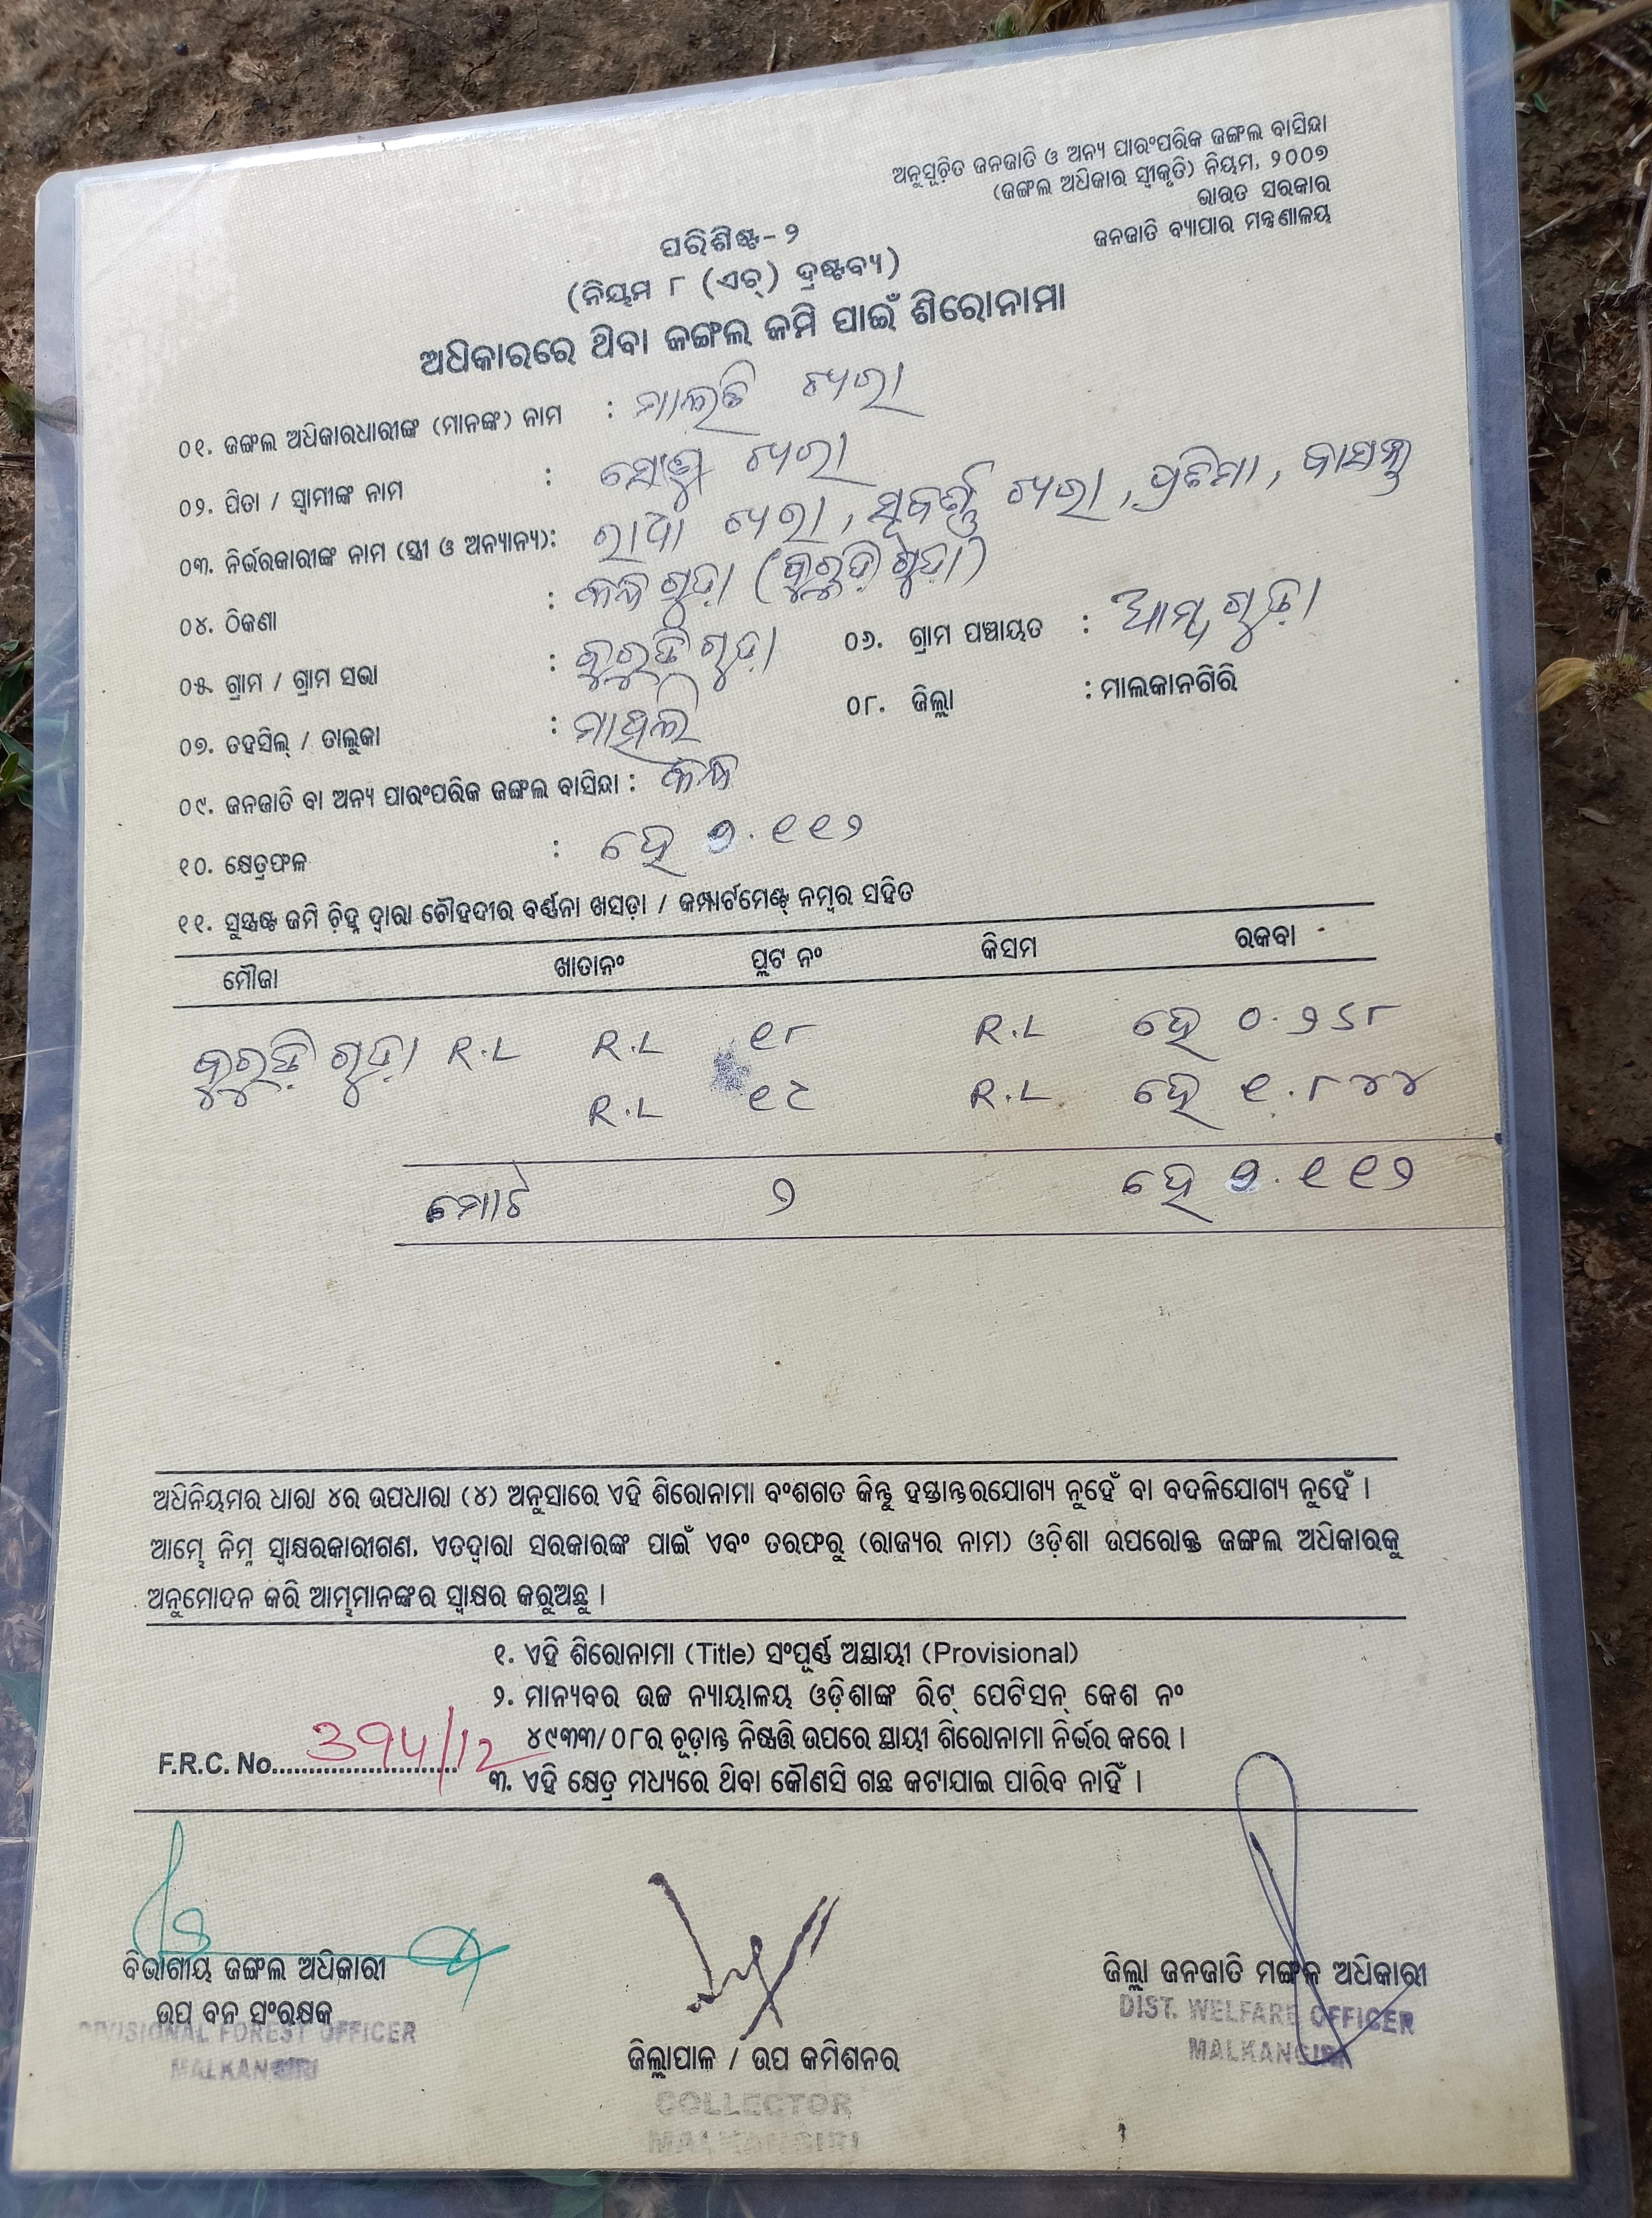 ଅନୁସୂଚିତ ଜନଜାତି ଓ ଅନ୍ୟ ପାରଂପରିକ ଜଙ୍ଗଲ ବାସିନ୍ଦା
(ଜଙ୍ଗଲ ଅଧିକାର ସ୍ୱୀକୃତି) ନିୟମ, ୨୦୦୭
ଭାରତ ସରକାର
ଜନଜାତି ବ୍ୟାପାର ମନ୍ତ୍ରଣାଳୟ
ପରିଶିଷ୍ଟ-୨
(ନିୟମ ୮ (ଏଚ୍) ଦ୍ରଷ୍ଟବ୍ୟ)
ଅଧିକାରରେ ଥିବା ଜଙ୍ଗଲ ଜମି ପାଇଁ ଶିରୋନାମା
୦୧. ଜଙ୍ଗଲ ଅଧିକାରଧାରୀଙ୍କ (ମାନଙ୍କ) ନାମ : ମାଲତି ଖରା
୦୨. ପିତା / ସ୍ୱାମୀଙ୍କ ନାମ : ଖରା
୦୩. ନିର୍ଭରକାରୀଙ୍କ ନାମ (ସ୍ତ୍ରୀ ଓ ଅନ୍ୟାନ୍ୟ): ରାଧା ଖରା, ସୁବର୍ଣ୍ଣ ଖରା, ପ୍ରତିମା, ବାସନ୍ତୀ
୦୪. ଠିକଣା : (କୁରୁଡ଼ିଗୁଡ଼ା)
୦୫. ଗ୍ରାମ / ଗ୍ରାମ ସଭା : କୁରୁଡ଼ିଗୁଡ଼ା ୦୬. ଗ୍ରାମ ପଞ୍ଚାୟତ : ଆମ୍ବଗୁଡ଼ା
୦୭. ତହସିଲ୍ / ତାଲୁକା : ମାଥିଲି ୦୮. ଜିଲ୍ଲା : ମାଲକାନଗିରି
୦୯. ଜନଜାତି ବା ଅନ୍ୟ ପାରଂପରିକ ଜଙ୍ଗଲ ବାସିନ୍ଦା :
୧୦. କ୍ଷେତ୍ରଫଳ : ହେ ୨.୧୧୨
୧୧. ସୁସ୍ପଷ୍ଟ ଜମି ଚିହ୍ନ ଦ୍ୱାରା ଚୌହଦୀର ବର୍ଣ୍ଣନା ଖସଡ଼ା / କମ୍ପାର୍ଟମେଣ୍ଟ୍ ନମ୍ବର ସହିତ
ମୌଜା ଖାତାନଂ ପ୍ଲଟ ନଂ କିସମ ରକବା
କୁରୁଡ଼ିଗୁଡ଼ା R.L R.L ୧୮ R.L ହେ ୦.୨୬୮
R.L ୧୯ R.L ହେ ୧.୮୪୪
ମୋଟ ୨ ହେ ୨.୧୧୨
ଅଧିନିୟମର ଧାରା ୪ର ଉପଧାରା (୪) ଅନୁସାରେ ଏହି ଶିରୋନାମା ବଂଶଗତ କିନ୍ତୁ ହସ୍ତାନ୍ତରଯୋଗ୍ୟ ନୁହେଁ ବା ବଦଳିଯୋଗ୍ୟ ନୁହେଁ ।
ଆମ୍ଭେ ନିମ୍ନ ସ୍ୱାକ୍ଷରକାରୀଗଣ, ଏତଦ୍ଦ୍ୱାରା ସରକାରଙ୍କ ପାଇଁ ଏବଂ ତରଫରୁ (ରାଜ୍ୟର ନାମ) ଓଡ଼ିଶା ଉପରୋକ୍ତ ଜଙ୍ଗଲ ଅଧିକାରକୁ
ଅନୁମୋଦନ କରି ଆମ୍ଭମାନଙ୍କର ସ୍ୱାକ୍ଷର କରୁଅଛୁ ।
୧. ଏହି ଶିରୋନାମା (Title) ସଂପୂର୍ଣ୍ଣ ଅସ୍ଥାୟୀ (Provisional)
୨. ମାନ୍ୟବର ଉଚ୍ଚ ନ୍ୟାୟାଳୟ ଓଡ଼ିଶାଙ୍କ ରିଟ୍ ପେଟିସନ୍ କେଶ ନଂ
୪୯୩୩/୦୮ର ଚୂଡ଼ାନ୍ତ ନିଷ୍ପତ୍ତି ଉପରେ ସ୍ଥାୟୀ ଶିରୋନାମା ନିର୍ଭର କରେ ।
F.R.C. No. 394/12
୩. ଏହି କ୍ଷେତ୍ର ମଧ୍ୟରେ ଥିବା କୌଣସି ଗଛ କଟାଯାଇ ପାରିବ ନାହିଁ ।
ବିଭାଗୀୟ ଜଙ୍ଗଲ ଅଧିକାରୀ
ଉପ ବନ ସଂରକ୍ଷକ
DIVISIONAL FOREST OFFICER
MALKANGIRI
ଜିଲ୍ଲାପାଳ / ଉପ କମିଶନର
COLLECTOR
MALKANGIRI
ଜିଲ୍ଲା ଜନଜାତି ମଙ୍ଗଳ ଅଧିକାରୀ
DIST. WELFARE OFFICER
MALKANGIRI